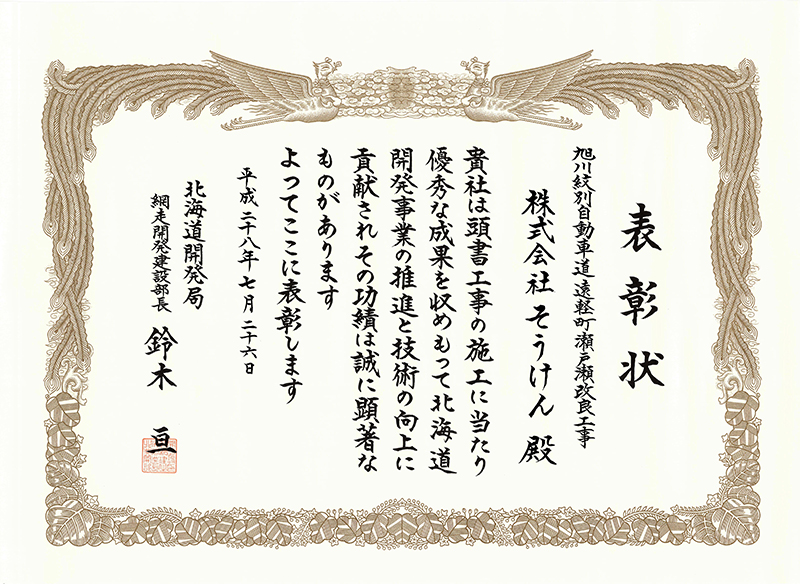 表彰状
旭川紋別自動車道 遠軽町瀬戸瀬改良工事
株式会社 そうけん 殿
貴社は頭書工事の施工に当たり
優秀な成果を収めもって北海道
開発事業の推進と技術の向上に
貢献されその功績は誠に顕著な
ものがあります
よってここに表彰します
平成二十八年七月二十六日
北海道開発局
網走開発建設部長 鈴木 亘